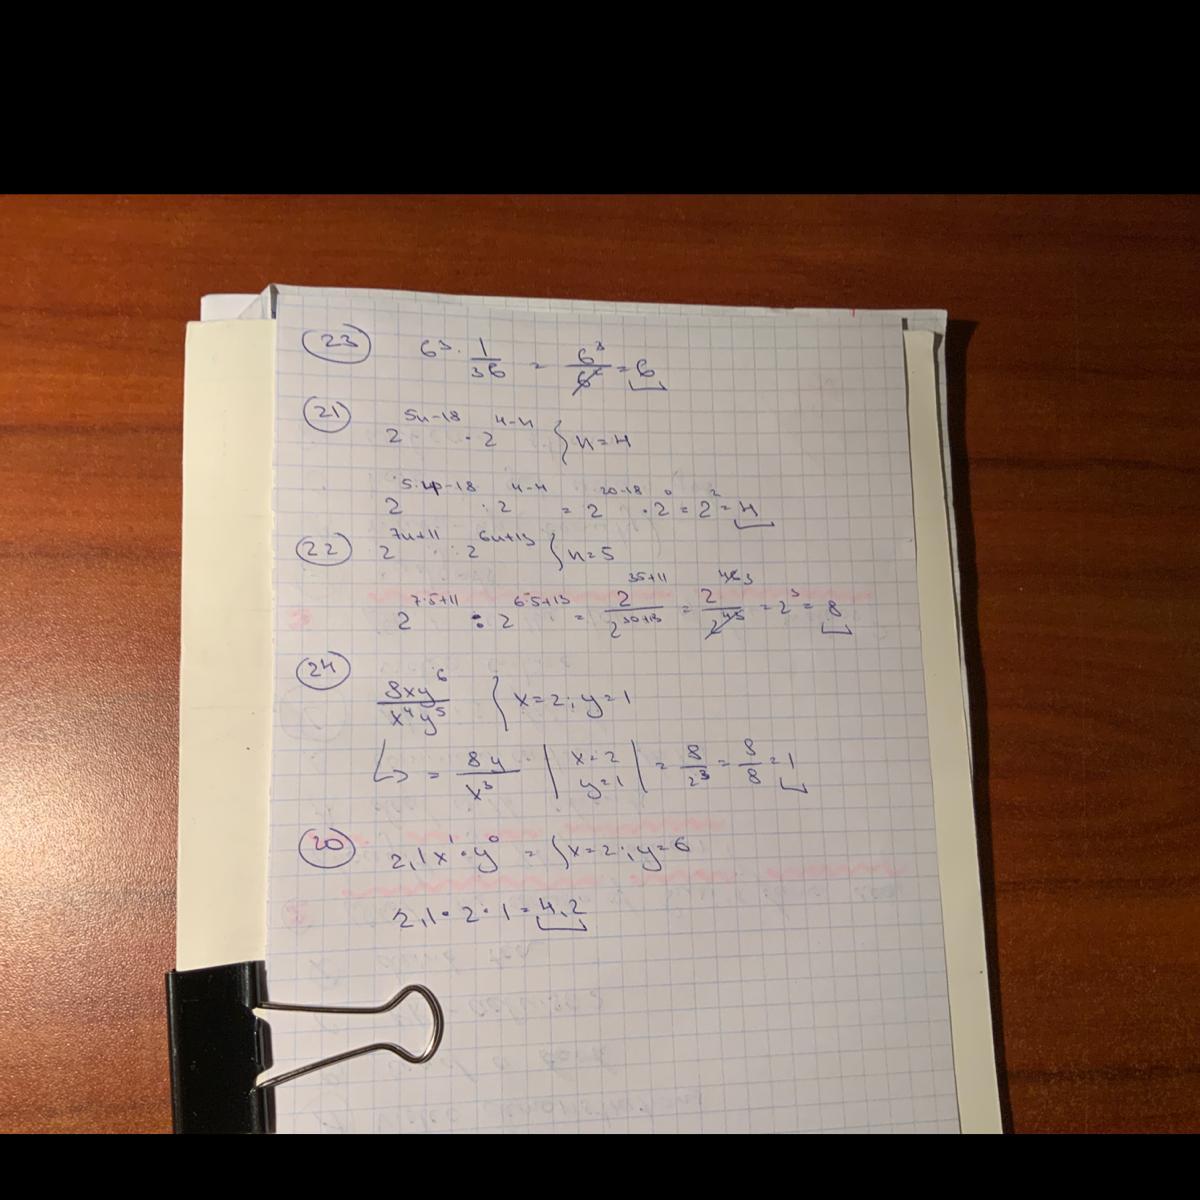 23 6³ · 1/36 = 6³/6² = 6
21 2^(5n-18) · 2^(4-n) { n = 4
2^(5·4-18) · 2^(4-4) = 2^(20-18) · 2⁰ = 2² = 4
22 2^(7n+11) : 2^(6n+13) { n = 5
2^(7·5+11) : 2^(6·5+13) = 2^(35+11)/2^(30+13) = 2^(46 3)/2^43 = 2³ = 8
24 8xy⁶/x⁴y⁵ { x = 2; y = 1
↳ = 8y/x³ | x = 2 y = 1 | = 8/2³ = 8/8 = 1
20 2,1x¹ · y⁰ = { x = 2; y = 6
2,1 · 2 · 1 = 4,2